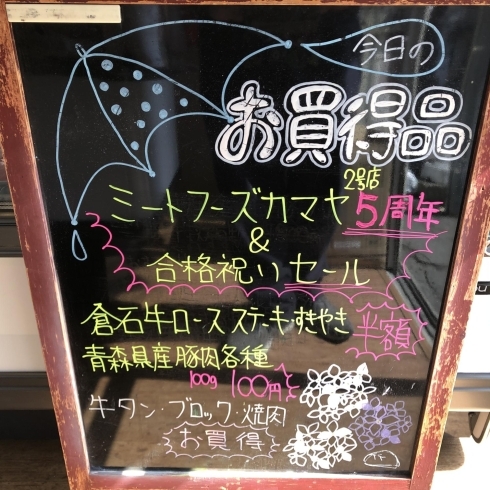 今日の
お買得品
ミートフーズカマヤ2号店5周年
&
合格祝いセール
倉石牛ロースステーキ・すきやき半額
青森県産豚肉各種
100g 100円
牛タン・ブロック・焼肉
お買得